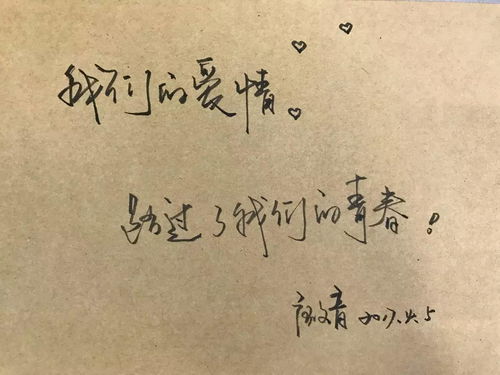 我们的爱情。
路过了我们的青春!
青 2017.4.5